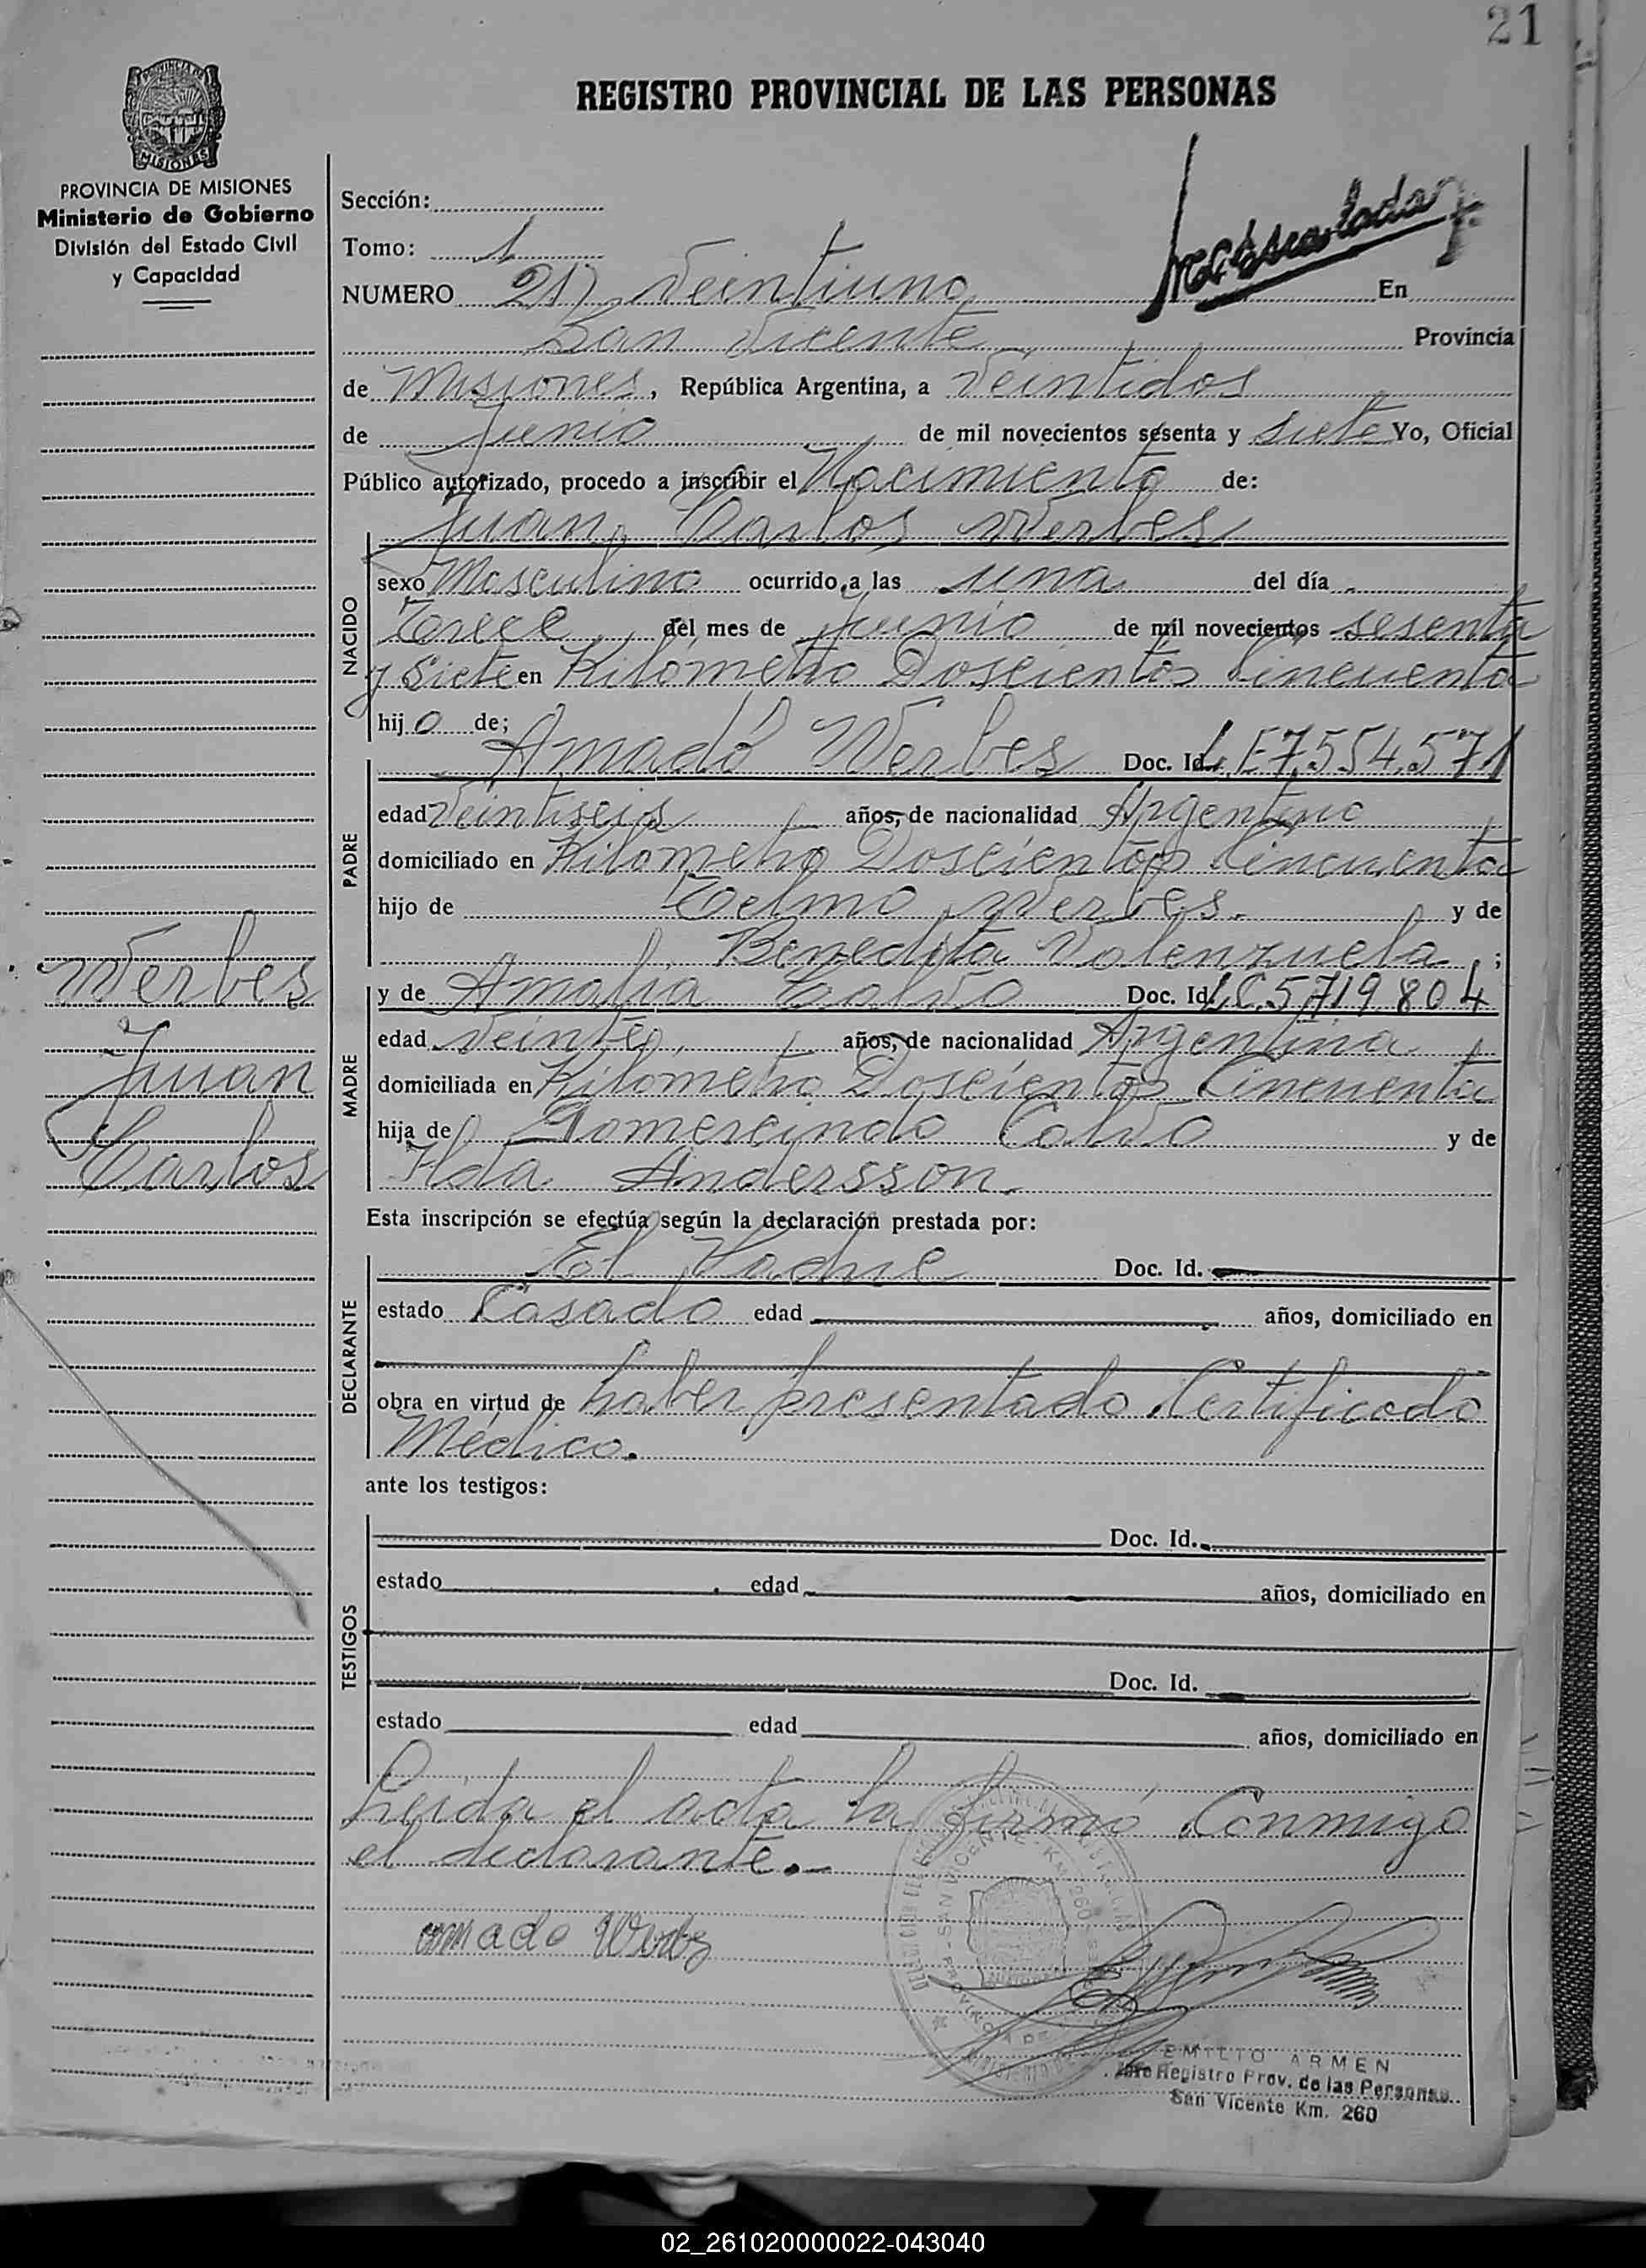 21
REGISTRO PROVINCIAL DE LAS PERSONAS
PROVINCIA DE MISIONES
MISIONES
PROVINCIA DE MISIONES
Ministerio de Gobierno
División del Estado Civil
y Capacidad
Sección:
Tomo: 1
NUMERO 21) Veintiuno En
San Vicente Provincia
de Misiones, República Argentina, a Veintidos
de Junio de mil novecientos sesenta y siete Yo, Oficial
Público autorizado, procedo a inscribir el Nacimiento de:
Juan Carlos Werbes
NACIDO
sexo Masculino ocurrido a las una del día
Trece del mes de junio de mil novecientos sesenta
y Siete en Kilómetro Doscientos Cincuenta
hijo de;
PADRE
Amado Werbes Doc. Id. L.E 7.554.571
edad Veintiseis años, de nacionalidad Argentino
domiciliado en Kilometro Doscientos Cincuenta
hijo de Telmo Werbes. y de
Benedita Valenzuela ;
Werbes
Juan
Carlos
MADRE
y de Amalia Calvo Doc. Id. L.C.5719804
edad Veinte años, de nacionalidad Argentina
domiciliada en Kilometro Doscientos Cincuenta
hija de Gomercindo Calvo y de
Ilda Andersson.
Esta inscripción se efectúa según la declaración prestada por:
DECLARANTE
El Padre Doc. Id.
estado Casado edad años, domiciliado en
obra en virtud de haber presentado Certificado
Médico.
ante los testigos:
TESTIGOS
Doc. Id.
estado edad años, domiciliado en
Doc. Id.
estado edad años, domiciliado en
Leida el acta la firmó Conmigo
el declarante.-
amado Werbes
SAN VICENTE KM 260
EMILIO ARMEN
Jefe Registro Prov. de las Personas
San Vicente Km. 260
02_261020000022-043040